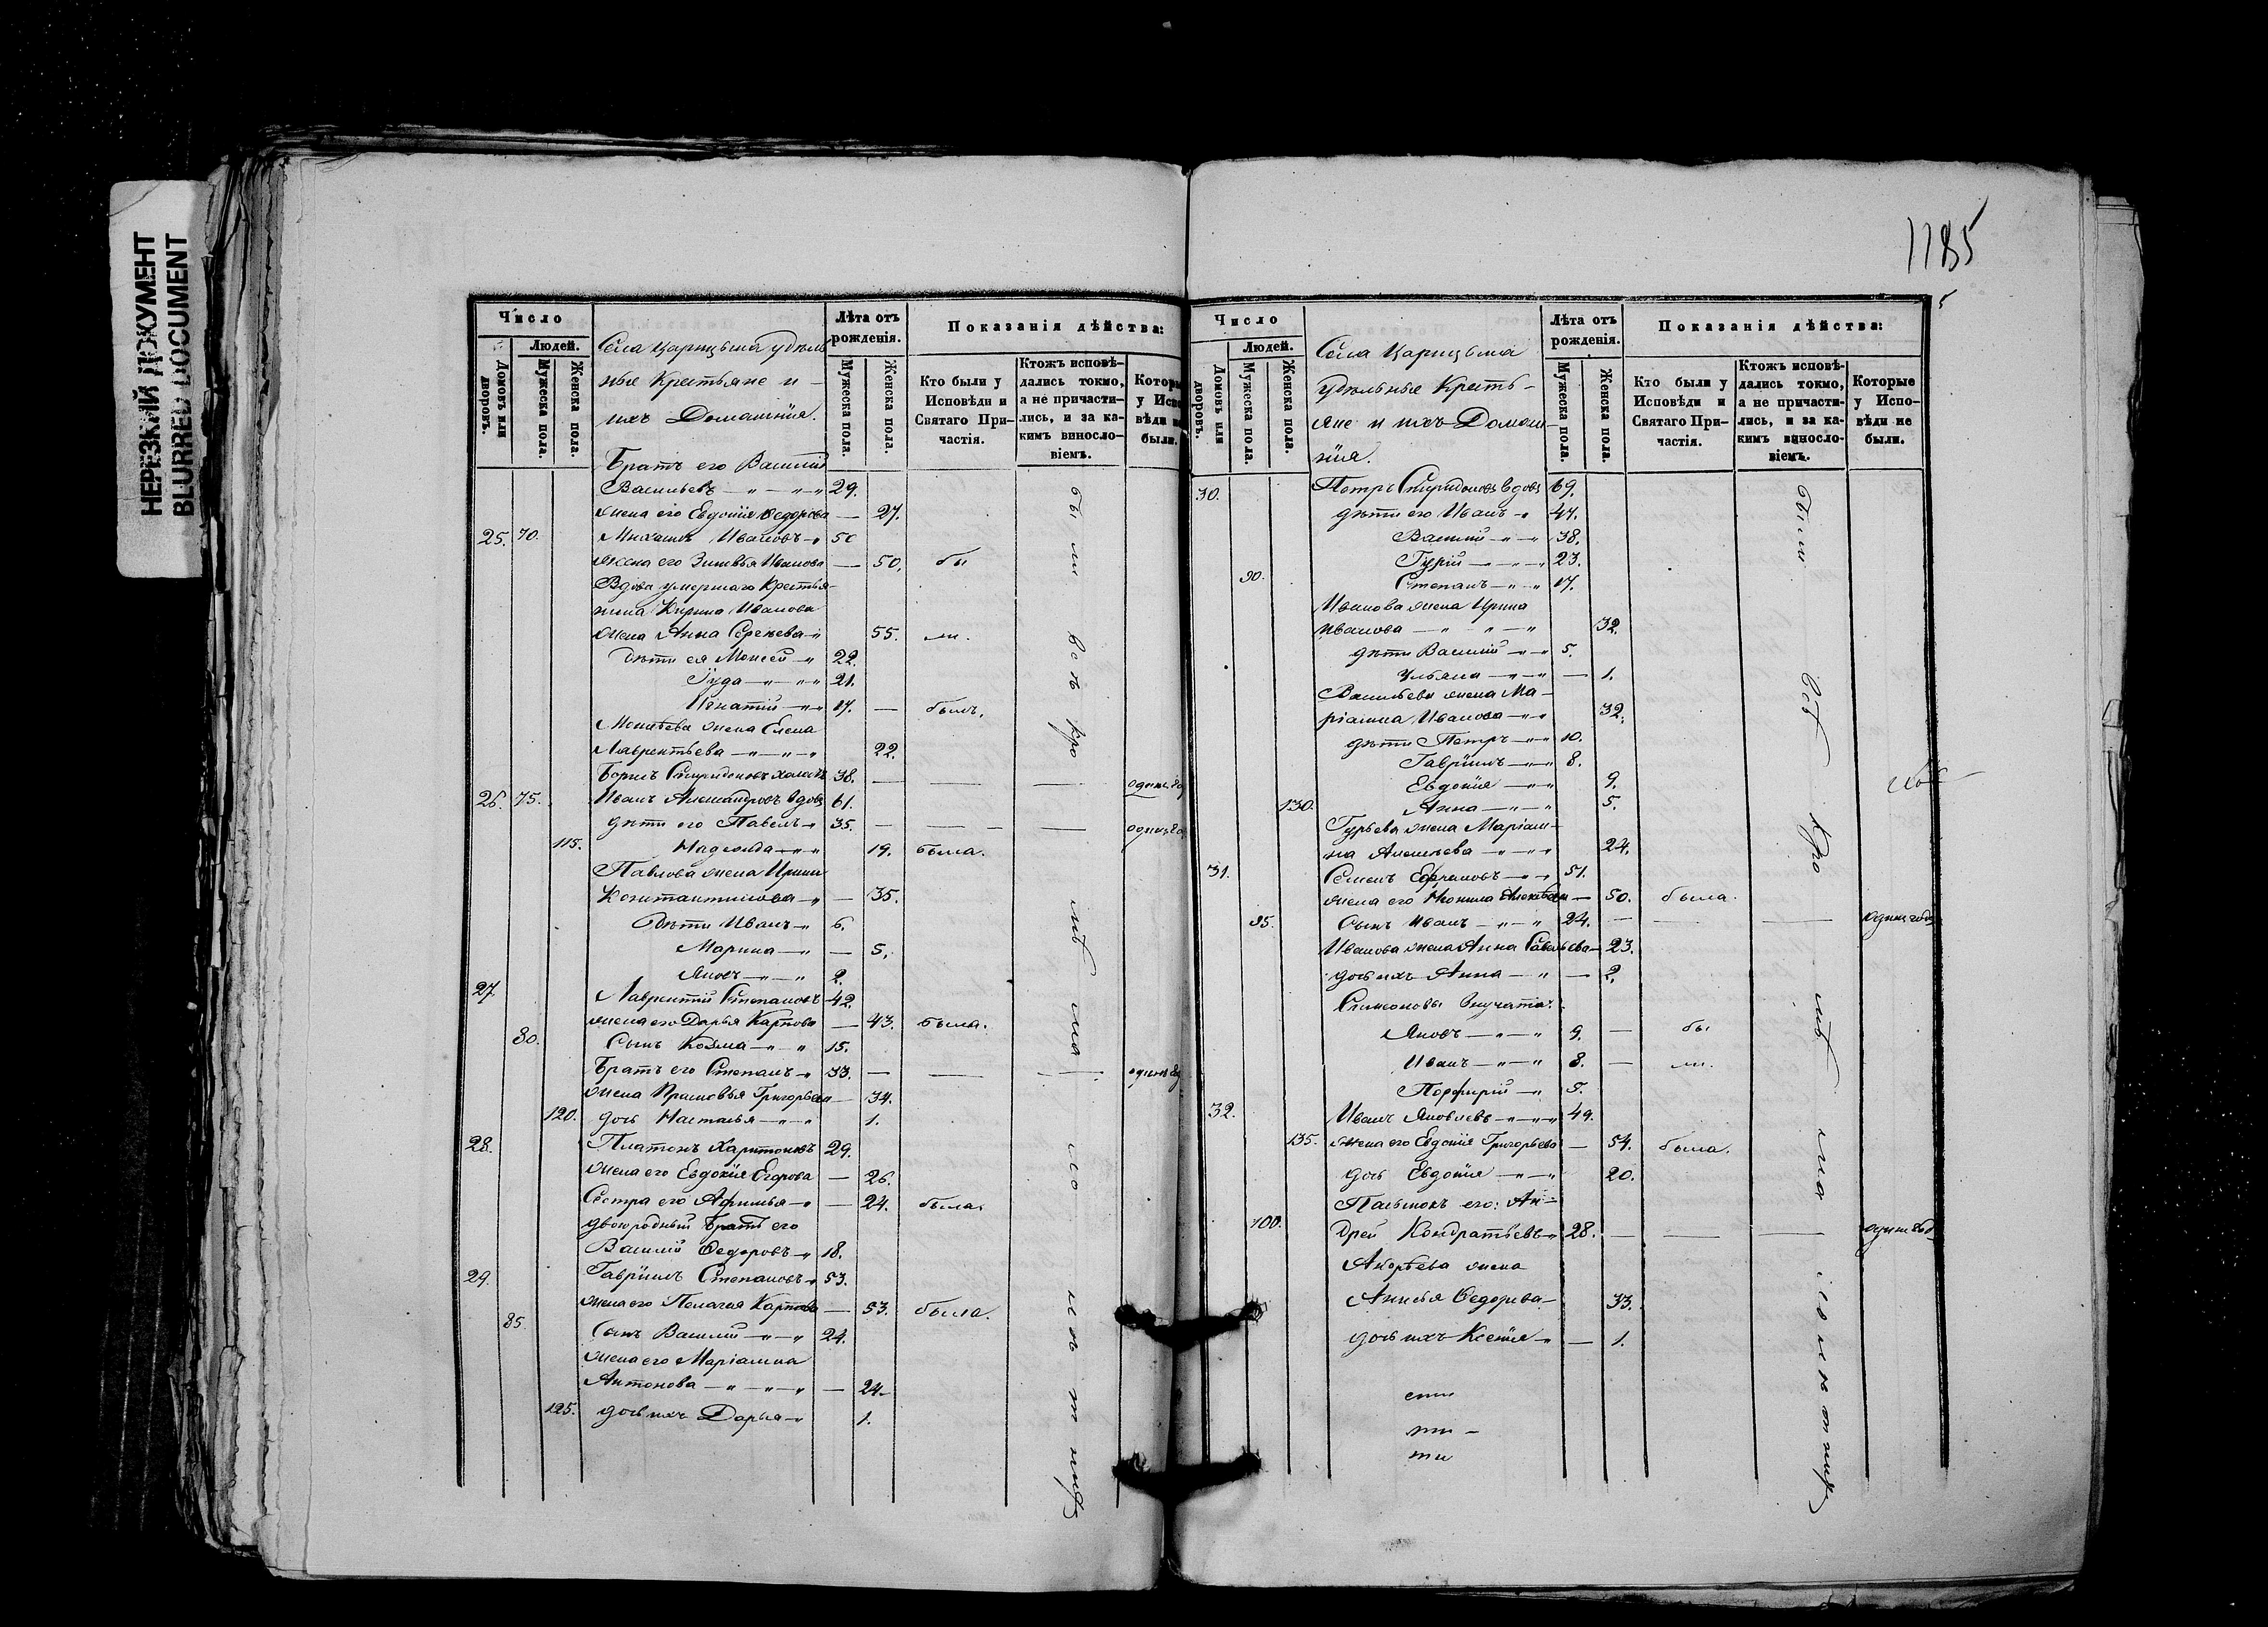 НЕРЕЗКИЙ ДОКУМЕНТ
BLURRED DOCUMENT
Число
Людей.
Домовъ или дворовъ.
Мужеска пола.
Женска пола.
Села Царицына удѣль
ные Крестьяне и
ихъ Домашнія.
Лѣта отъ рожденія.
Мужеска пола.
Женска пола.
Показанія дѣйства:
Кто были у Исповѣди и Святаго При-частія.
Ктожъ исповѣ-дались токмо, а не причасти-лись, и за ка-кимъ винословіемъ.
были.
Братъ его Василій
Васильевъ 29.
жена его Евдокія Ѳедорова — 27.
25. 70. Михаилъ Ивановъ 50
жена его Зиновья Иванова — 50. бы
Вдова умершаго Крестья-
нина Кирила Иванова
жена Анна Сергѣева 55. ли.
дѣти ея Моисей 22.
Іуда 21.
Игнатій 17. — былъ.
жена Елена
Лаврентьева 22.
Борисъ Спиридоновъ холостъ 38. —
26. 75. Иванъ Александровъ вдовъ 61.
дѣти его Павелъ 35. —
115. Надежда 19. была.
Павлова жена Ирина
— 35.
Дѣти Иванъ 6.
Марина — 5.
Яковъ 2.
27. Лаврентій Степановъ 42.
жена его Дарья Карпова — 43. была.
80. Сынъ Козма 15.
Братъ его Степанъ 33. —
жена Прасковья Григорьева — 34.
120. дочь Наталья 1.
28. Платонъ Харитоновъ 29.
жена его Евдокія Егорова — 26.
Сестра его Афимья — 24. была.
двоюродный Братъ его
Василій Ѳедоровъ 18.
29. Гавріилъ Степановъ 53.
жена его Пелагея Карпова — 53. была.
85. Сынъ Василій 24.
жена его Маріанна
Антонова — 24
125. дочь ихъ Дарья 1.
1185
Число
Людей.
Домовъ или дворовъ.
Мужеска пола.
Женска пола.
Села Царицына
Удѣльные Кресть-
яне и ихъ Домаш-
нія.
Лѣта отъ рожденія.
Мужеска пола.
Женска пола.
Показанія дѣйства:
Кто были у Исповѣди и Святаго При-частія.
Ктожъ исповѣ-дались токмо, а не причасти-лись, и за ка-кимъ винословіемъ.
Которые у Испо-вѣди не были.
30. Петръ Спиридоновъ вдовъ 69.
дѣти его Иванъ 47.
Василій 38.
Гурій 23.
90. Степанъ 17.
Иванова жена Ирина
Иванова 32.
дѣти Василій 5.
Ульяна — 1.
Васильева жена Ма-
ріанна Иванова 32.
дѣти Петръ 10.
Гавріилъ 8.
Евдокія 9.
130. Анна 5.
Гурьева жена Маріан-
на Алексѣева 24.
31. Семенъ 51.
жена его — 50. была.
95. Сынъ Иванъ 24. —
Иванова жена Анна Савельева — 23.
дочь ихъ Анна — 2.
Симеоновы Внучата:
Яковъ 9. — бы
Иванъ 8. — ли.
Порфирій 5.
32. Иванъ Яковлевъ 49.
135. жена его Евдокія Григорьева — 54. была.
дочь Евдокія 20.
его: Ан-
100. дрей Кондратьевъ 28. —
Андреева жена
Анисья Ѳедорова 33.
дочь ихъ Ксенія — 1.